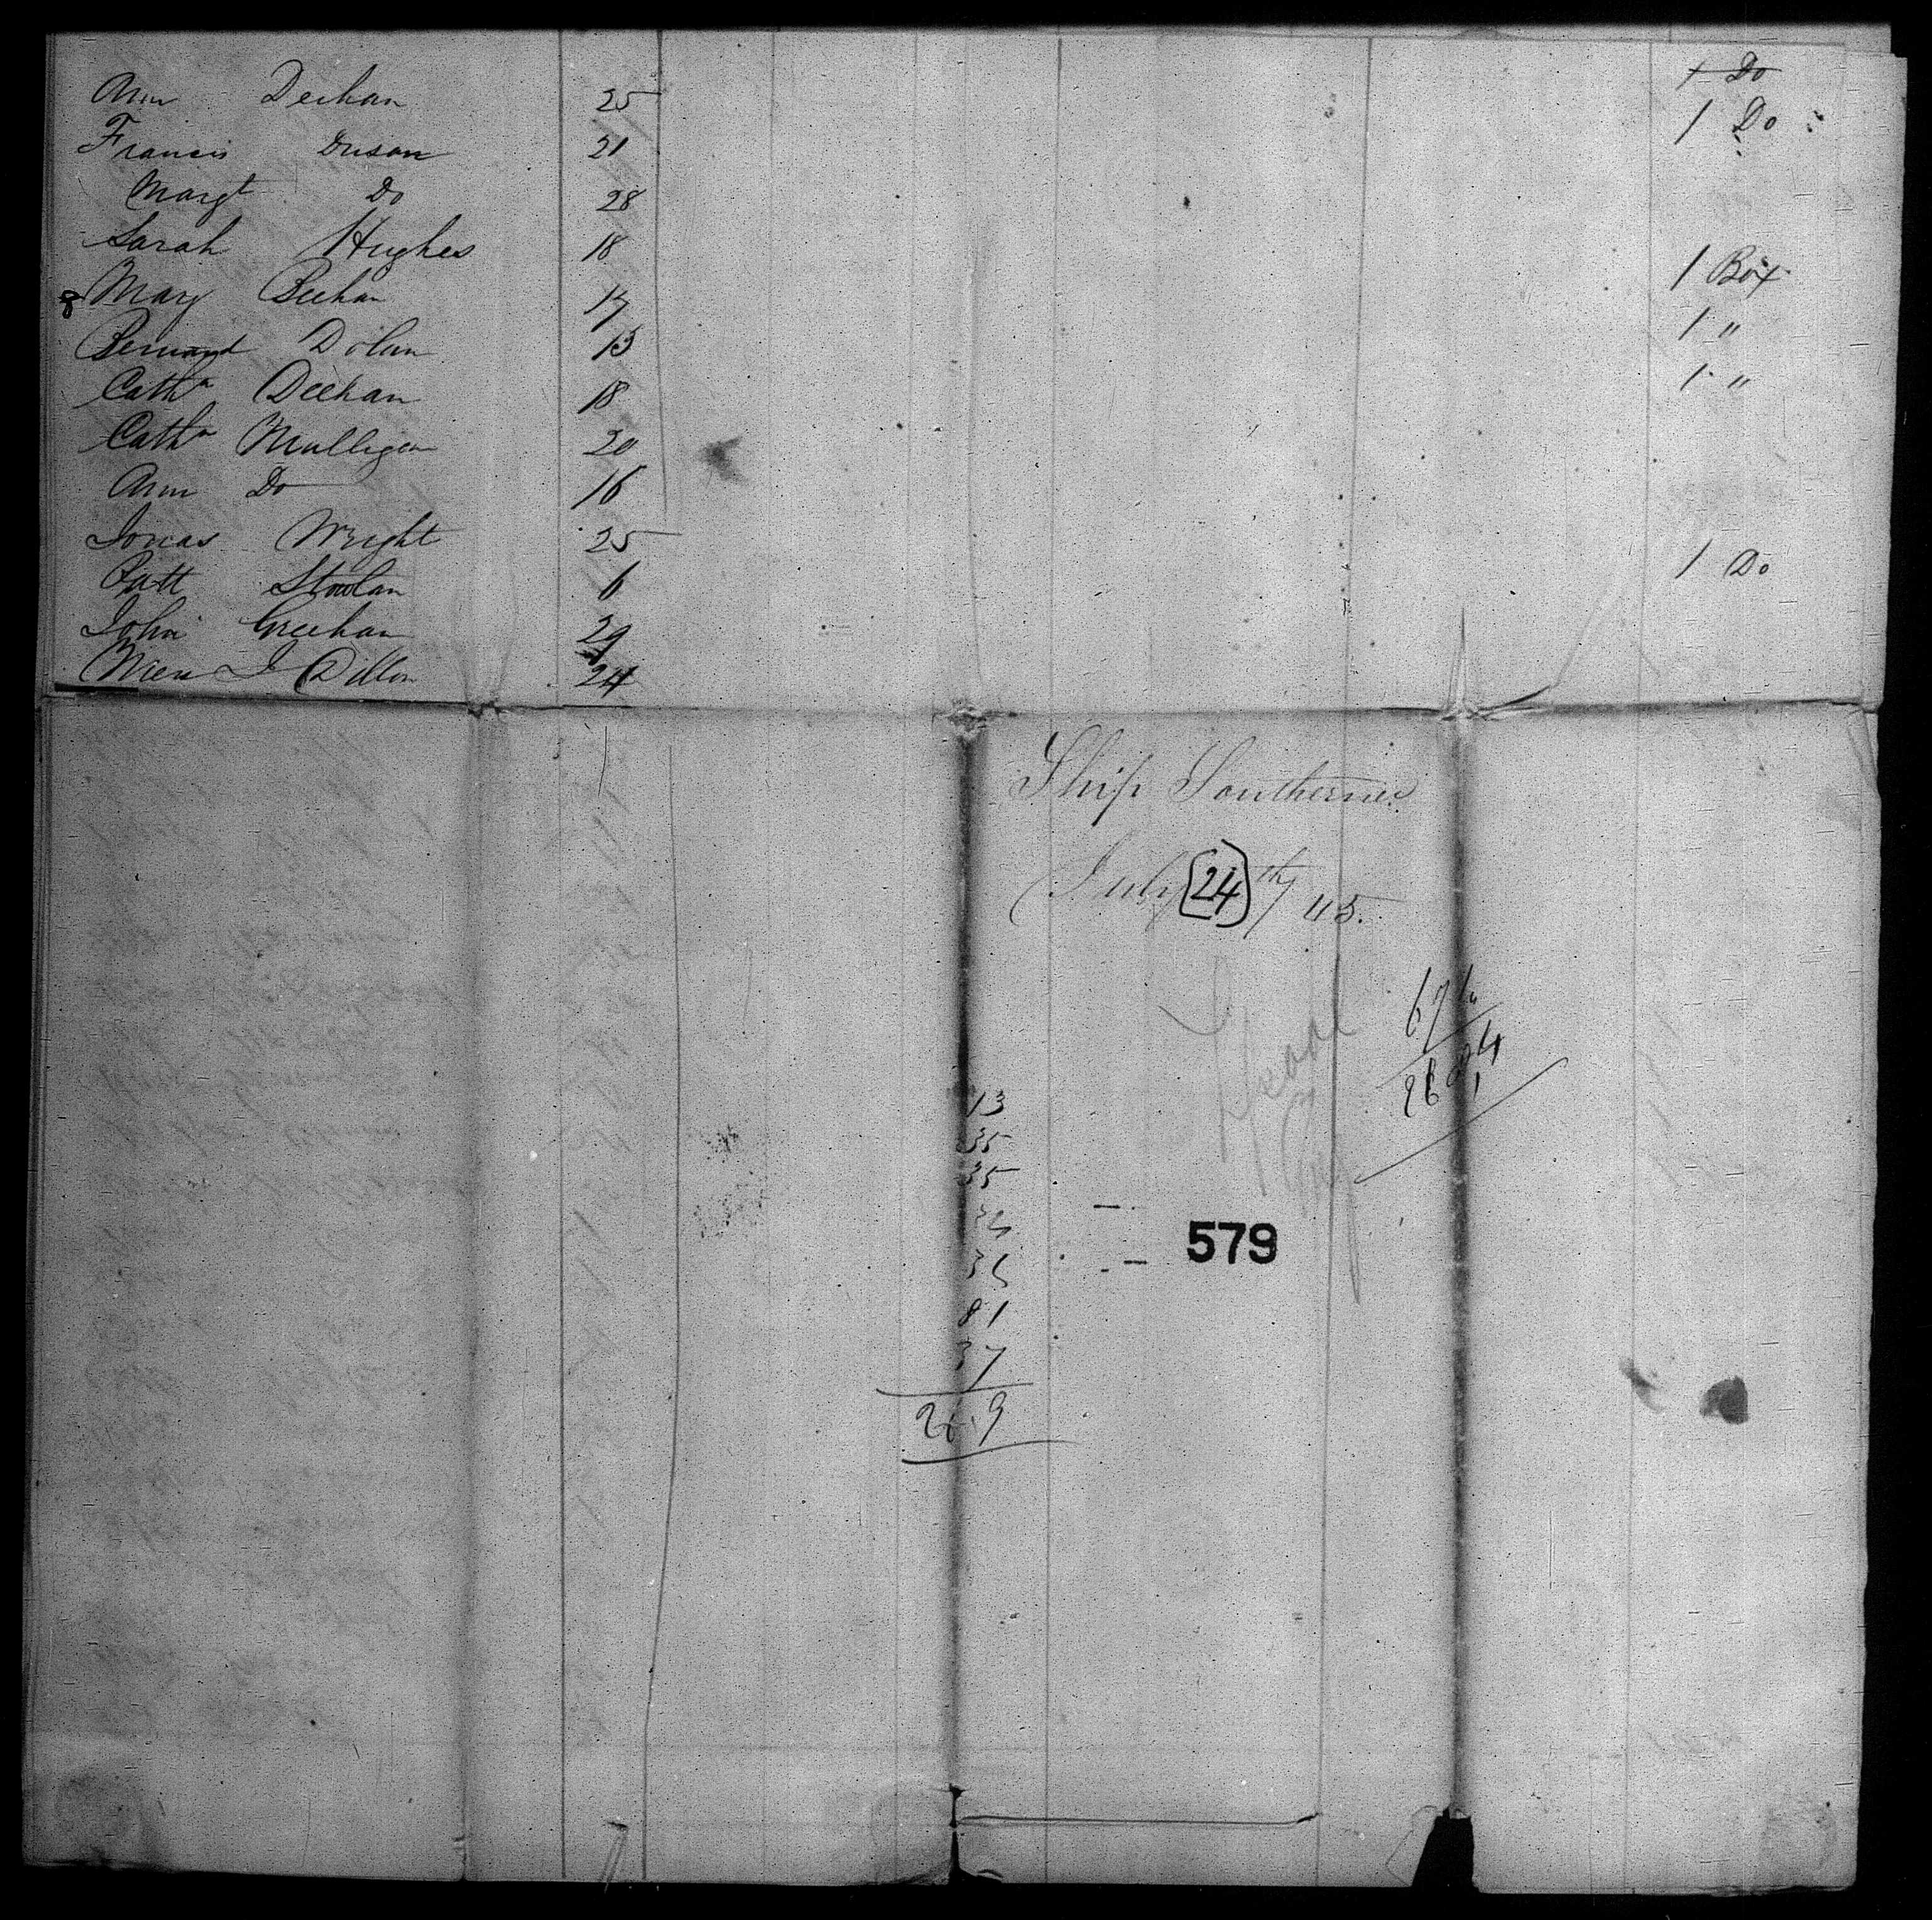 1 Do
Ann Deehan 25 1 Do
Francis Duson 21
Margt Do 28
Sarah Hughes 18 1 Box
8 Mary Beehan 17 1 "
Bernard Dolan 13 1 "
Catha Deehan 18
Catha Mulligan 20
Ann Do 16
Jonas Wright 25 1 Do
Patt 6
John Greehan 29
J Dillon 24
Ship Southerner
July 24th / 45.
13
35
35
81
37
579